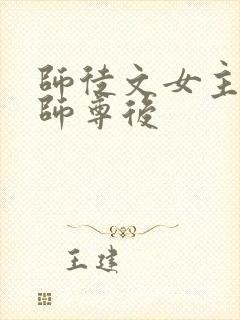 師徒文女主
師尊後
王建